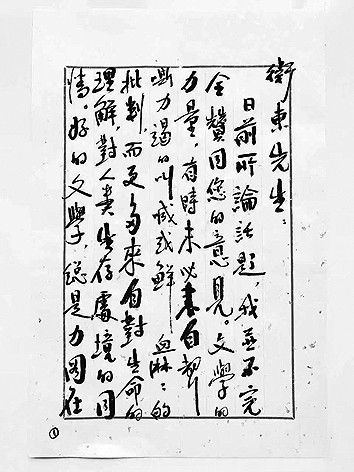 衛東先生：
日前所論話題，我並不完
全贊同您的意見。文學的
力量，有時未必來自聲
嘶力竭的叫喊或鮮血淋〻的
批判，而更多來自對生命的
理解，對人類生存處境的同
情。好的文學，總是力圖在
①